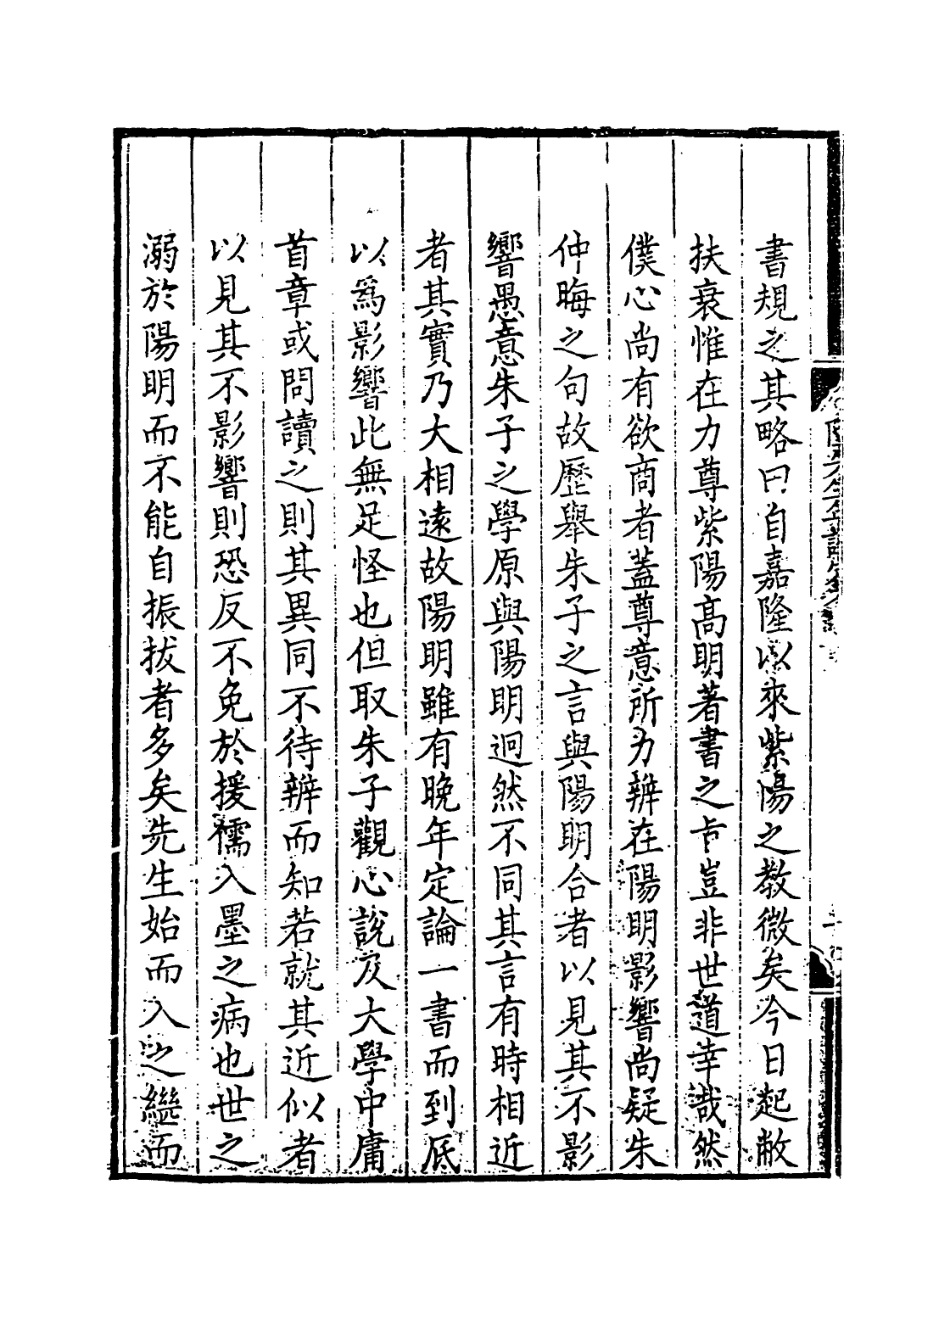 書規之其略曰自嘉隆以來紫陽之教微矣今日起敝
扶衰惟在力尊紫陽高明著書之㫖豈非世道幸哉然
僕心尚有欲商者蓋尊意所力辨在陽明影響尚疑朱
仲晦之句故歴舉朱子之言與陽明合者以見其不影
響愚意朱子之學原與陽明迥然不同其言有時相近
者其實乃大相遠故陽明雖有晚年定論一書而到底
以爲影響此無足怪也但取朱子觀心說及大學中庸
首章或問讀之則其異同不待辨而知若就其近似者
以見其不影響則恐反不免於援儒入墨之病也世之
溺於陽明而不能自振拔者多矣先生始而入之繼而